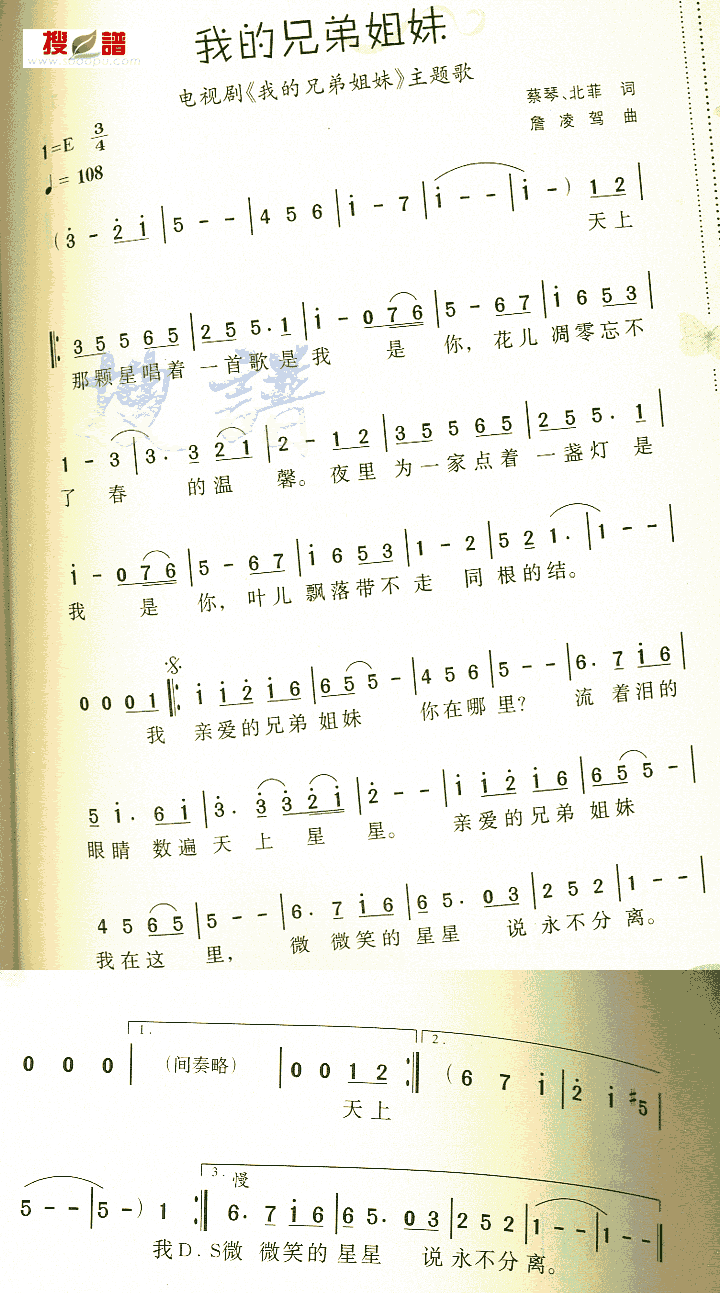 搜譜
www.sooopu.com
我的兄弟姐妹
电视剧《我的兄弟姐妹》主题歌
蔡琴、北菲 词
詹凌驾 曲
1=E 3/4
♩= 108
(3̇ - 2̇ 1̇ | 5 - - | 4 5 6 | 1̇ - 7 | 1̇ - - | 1̇ -) 1 2 |
天上
‖: 3 5 5 6 5 | 2 5 5. 1 | 1̇ - 0 7 6 | 5 - 6 7 | 1̇ 6 5 3 |
那颗星唱着 一首歌是我 是 你, 花儿 凋零忘不
1 - 3 | 3. 3 2 1 | 2 - 1 2 | 3 5 5 6 5 | 2 5 5. 1 |
了 春 的温 馨。 夜里 为一家点着 一盏灯 是
1̇ - 0 7 6 | 5 - 6 7 | 1̇ 6 5 3 | 1 - 2 | 5 2 1. | 1 - - |
我 是 你, 叶儿 飘落带不 走 同 根的结。
0 0 0 1 ‖: 1̇ 1̇ 2̇ 1̇ 6 | 6 5 5 - | 4 5 6 | 5 - - | 6. 7 1̇ 6 |
我 亲爱的兄弟 姐妹 你在哪 里? 流 着泪的
5 1̇. 6 1̇ | 3̇. 3̇ 3̇ 2̇ 1̇ | 2̇ - - | 1̇ 1̇ 2̇ 1̇ 6 | 6 5 5 - |
眼睛 数遍 天 上 星 星。 亲爱的兄弟 姐妹
4 5 6 5 | 5 - - | 6. 7 1̇ 6 | 6 5. 0 3 | 2 5 2 | 1 - - |
我在这 里, 微 微笑的 星星 说 永不分 离。
1. 2.
0 0 0 | (间奏略) | 0 0 1 2 :‖ (6 7 1̇ | 2̇ 1̇ #5 |
天上
3. 慢
5 - - | 5 -) 1 :‖ 6. 7 1̇ 6 | 6 5. 0 3 | 2 5 2 | 1 - - | 1 - - ‖
我D.S微 微笑的 星星 说 永不分 离。